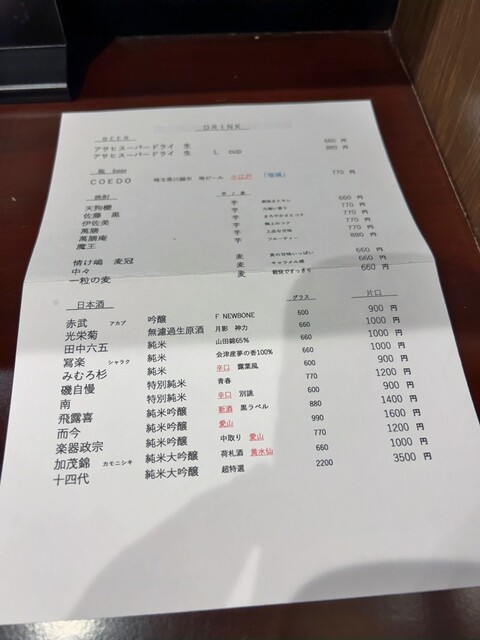 DRINK
BEER
アサヒスーパードライ 生 660 円
アサヒスーパードライ 生 L cup 880 円
瓶 beer
COEDO 埼玉県川越市 地ビール 小江戸 「瑠璃」 770 円
焼酎 芋ノ麦
天狗櫻 芋 660 円
佐藤 黒 芋 770 円
伊佐美 芋 まろやかさとコク 770 円
萬膳 芋 極上のコク 770 円
萬膳庵 芋 上品な甘味 770 円
魔王 芋 フルーティー 880 円
情け嶋 麦冠 麦 麦の甘味いっぱい 660 円
中々 麦 キャラメル様 660 円
一粒の麦 麦 軽快ですっきり 660 円
日本酒 グラス 片口
赤武 アカブ 吟醸 F NEWBONE 600 900 円
光栄菊 無濾過生原酒 月影 神力 660 1000 円
田中六五 純米 山田錦65% 660 1000 円
寫楽 シャラク 純米 会津産夢の香100% 660 1000 円
みむろ杉 純米 辛口 露葉風 600 900 円
磯自慢 特別純米 青春 770 1200 円
南 特別純米 辛口 別誂 600 900 円
飛露喜 純米吟醸 新酒 黒ラベル 880 1400 円
而今 純米吟醸 愛山 990 1600 円
楽器政宗 純米吟醸 中取り 愛山 770 1200 円
加茂錦 カモニシキ 純米大吟醸 荷札酒 黄水仙 660 1000 円
十四代 純米大吟醸 超特選 2200 3500 円